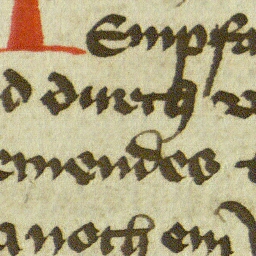 Empfa
d durch v
emendes
a noch ein